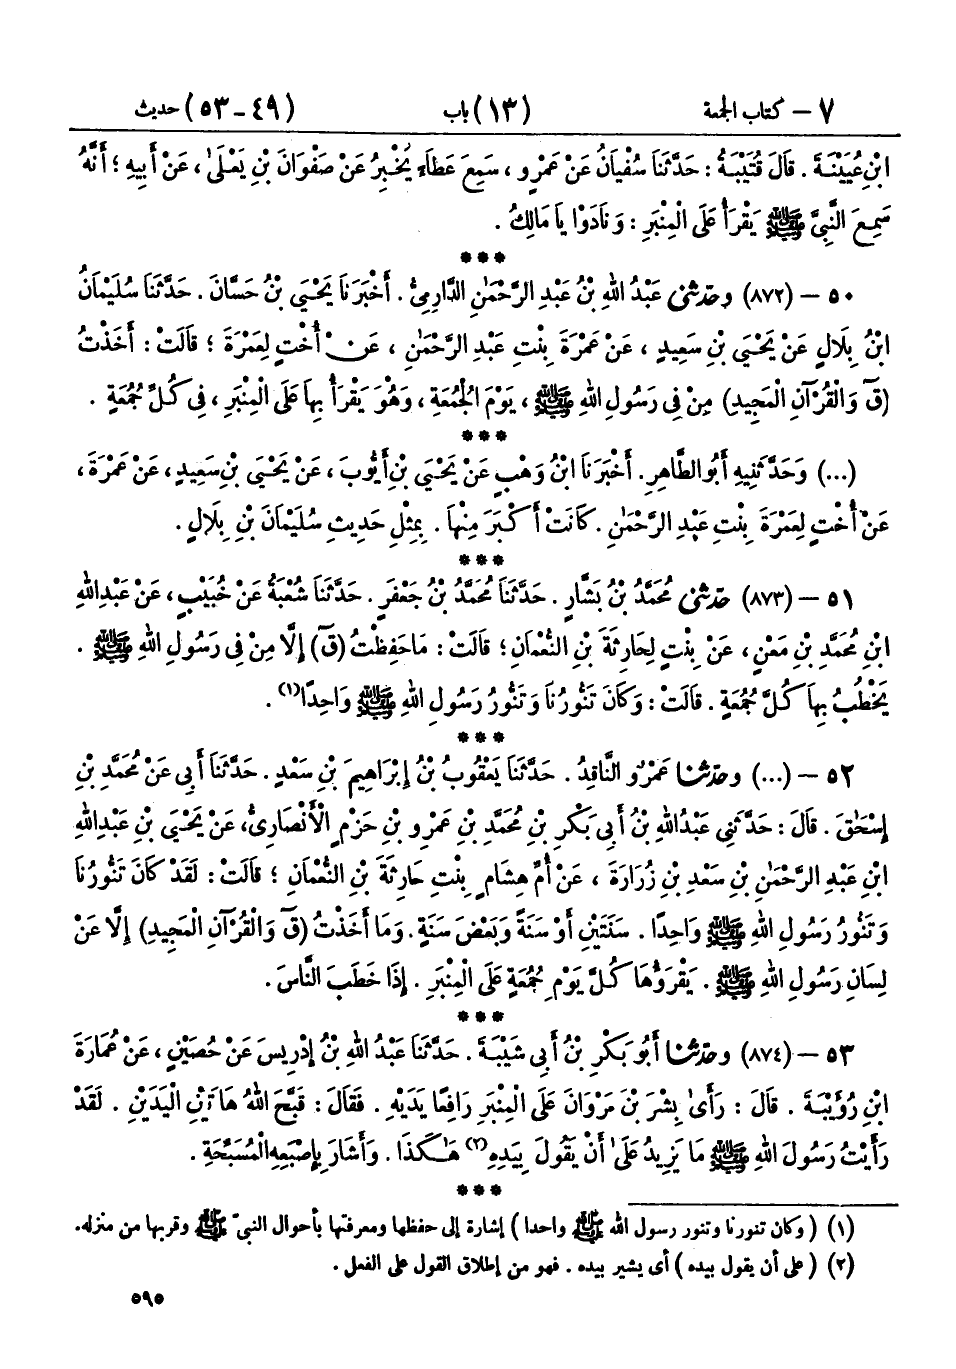 ٧ – كتاب الجمعة (١٣) باب (٤٩ - ٥٣) حديث
ابْنِ عُيَيْنَةَ . قَالَ قُتَيْبَةُ : حَدَّثَنَا سُفْيَانُ عَنْ عَمْرٍو ، سَمِعَ عَطَاءً يُخْبِرُ عَنْ صَفْوَانَ بْنِ يَعْلَىٰ ، عَنْ أَبِيهِ ؛ أَنَّهُ
سَمِعَ النَّبِيَّ ﷺ يَقْرَأُ عَلَى الْمِنْبَرِ : وَنَادَوْا يَا مَالِكُ .
***
٥٠ – (٨٧٢) وحَدَّثَنِي عَبْدُ اللهِ بْنُ عَبْدِ الرَّحْمَٰنِ الدَّارِمِيُّ . أَخْبَرَنَا يَحْيَىٰ بْنُ حَسَّانَ . حَدَّثَنَا سُلَيْمَانُ
ابْنُ بِلَالٍ عَنْ يَحْيَىٰ بْنِ سَعِيدٍ ، عَنْ عَمْرَةَ بِنْتِ عَبْدِ الرَّحْمَٰنِ ، عَنْ أُخْتٍ لِعَمْرَةَ ؛ قَالَتْ : أَخَذْتُ
(قٓ وَالْقُرْآنِ الْمَجِيدِ) مِنْ فِي رَسُولِ اللهِ ﷺ ، يَوْمَ الْجُمُعَةِ ، وَهُوَ يَقْرَأُ بِهَا عَلَى الْمِنْبَرِ ، فِي كُلِّ جُمُعَةٍ .
***
(...) وَحَدَّثَنِيهِ أَبُو الطَّاهِرِ . أَخْبَرَنَا ابْنُ وَهْبٍ عَنْ يَحْيَىٰ بْنِ أَيُّوبَ ، عَنْ يَحْيَىٰ بْنِ سَعِيدٍ ، عَنْ عَمْرَةَ ،
عَنْ أُخْتٍ لِعَمْرَةَ بِنْتِ عَبْدِ الرَّحْمَٰنِ . كَانَتْ أَكْبَرَ مِنْهَا . بِمِثْلِ حَدِيثِ سُلَيْمَانَ بْنِ بِلَالٍ .
***
٥١ – (٨٧٣) حَدَّثَنِي مُحَمَّدُ بْنُ بَشَّارٍ . حَدَّثَنَا مُحَمَّدُ بْنُ جَعْفَرٍ . حَدَّثَنَا شُعْبَةُ عَنْ خُبَيْبٍ ، عَنْ عَبْدِ اللهِ
ابْنِ مُحَمَّدِ بْنِ مَعْنٍ ، عَنْ بِنْتٍ لِحَارِثَةَ بْنِ النُّعْمَانِ ؛ قَالَتْ : مَا حَفِظْتُ (قٓ) إِلَّا مِنْ فِي رَسُولِ اللهِ ﷺ .
يَخْطُبُ بِهَا كُلَّ جُمُعَةٍ . قَالَتْ : وَكَانَ تَنُّورُنَا وَتَنُّورُ رَسُولِ اللهِ ﷺ وَاحِدًا(١) .
***
٥٢ – (...) وحَدَّثَنَا عَمْرٌو النَّاقِدُ . حَدَّثَنَا يَعْقُوبُ بْنُ إِبْرَاهِيمَ بْنِ سَعْدٍ . حَدَّثَنَا أَبِي عَنْ مُحَمَّدِ بْنِ
إِسْحَٰقَ . قَالَ : حَدَّثَنِي عَبْدُ اللهِ بْنُ أَبِي بَكْرِ بْنِ مُحَمَّدِ بْنِ عَمْرِو بْنِ حَزْمٍ الْأَنْصَارِيُّ ، عَنْ يَحْيَىٰ بْنِ عَبْدِ اللهِ
ابْنِ عَبْدِ الرَّحْمَٰنِ بْنِ سَعْدِ بْنِ زُرَارَةَ ، عَنْ أُمِّ هِشَامٍ بِنْتِ حَارِثَةَ بْنِ النُّعْمَانِ ؛ قَالَتْ : لَقَدْ كَانَ تَنُّورُنَا
وَتَنُّورُ رَسُولِ اللهِ ﷺ وَاحِدًا . سَنَتَيْنِ أَوْ سَنَةً وَبَعْضَ سَنَةٍ . وَمَا أَخَذْتُ (قٓ وَالْقُرْآنِ الْمَجِيدِ) إِلَّا عَنْ
لِسَانِ رَسُولِ اللهِ ﷺ . يَقْرَؤُهَا كُلَّ يَوْمِ جُمُعَةٍ عَلَى الْمِنْبَرِ . إِذَا خَطَبَ النَّاسَ .
***
٥٣ – (٨٧٤) وحَدَّثَنَا أَبُو بَكْرِ بْنُ أَبِي شَيْبَةَ . حَدَّثَنَا عَبْدُ اللهِ بْنُ إِدْرِيسَ عَنْ حُصَيْنٍ ، عَنْ عُمَارَةَ
ابْنِ رُؤَيْبَةَ . قَالَ : رَأَىٰ بِشْرَ بْنَ مَرْوَانَ عَلَى الْمِنْبَرِ رَافِعًا يَدَيْهِ . فَقَالَ : قَبَّحَ اللهُ هَاتَيْنِ الْيَدَيْنِ . لَقَدْ
رَأَيْتُ رَسُولَ اللهِ ﷺ مَا يَزِيدُ عَلَىٰ أَنْ يَقُولَ بِيَدِهِ(٢) هَٰكَذَا . وَأَشَارَ بِإِصْبَعِهِ الْمُسَبِّحَةِ .
***
(١) ( وكان تنورنا وتنور رسول الله ﷺ واحدا ) إشارة إلى حفظها ومعرفتها بأحوال النبيّ ﷺ وقربها من منزله.
(٢) ( على أن يقول بيده ) أى يشير بيده . فهو من إطلاق القول على الفعل .
٥٩٥